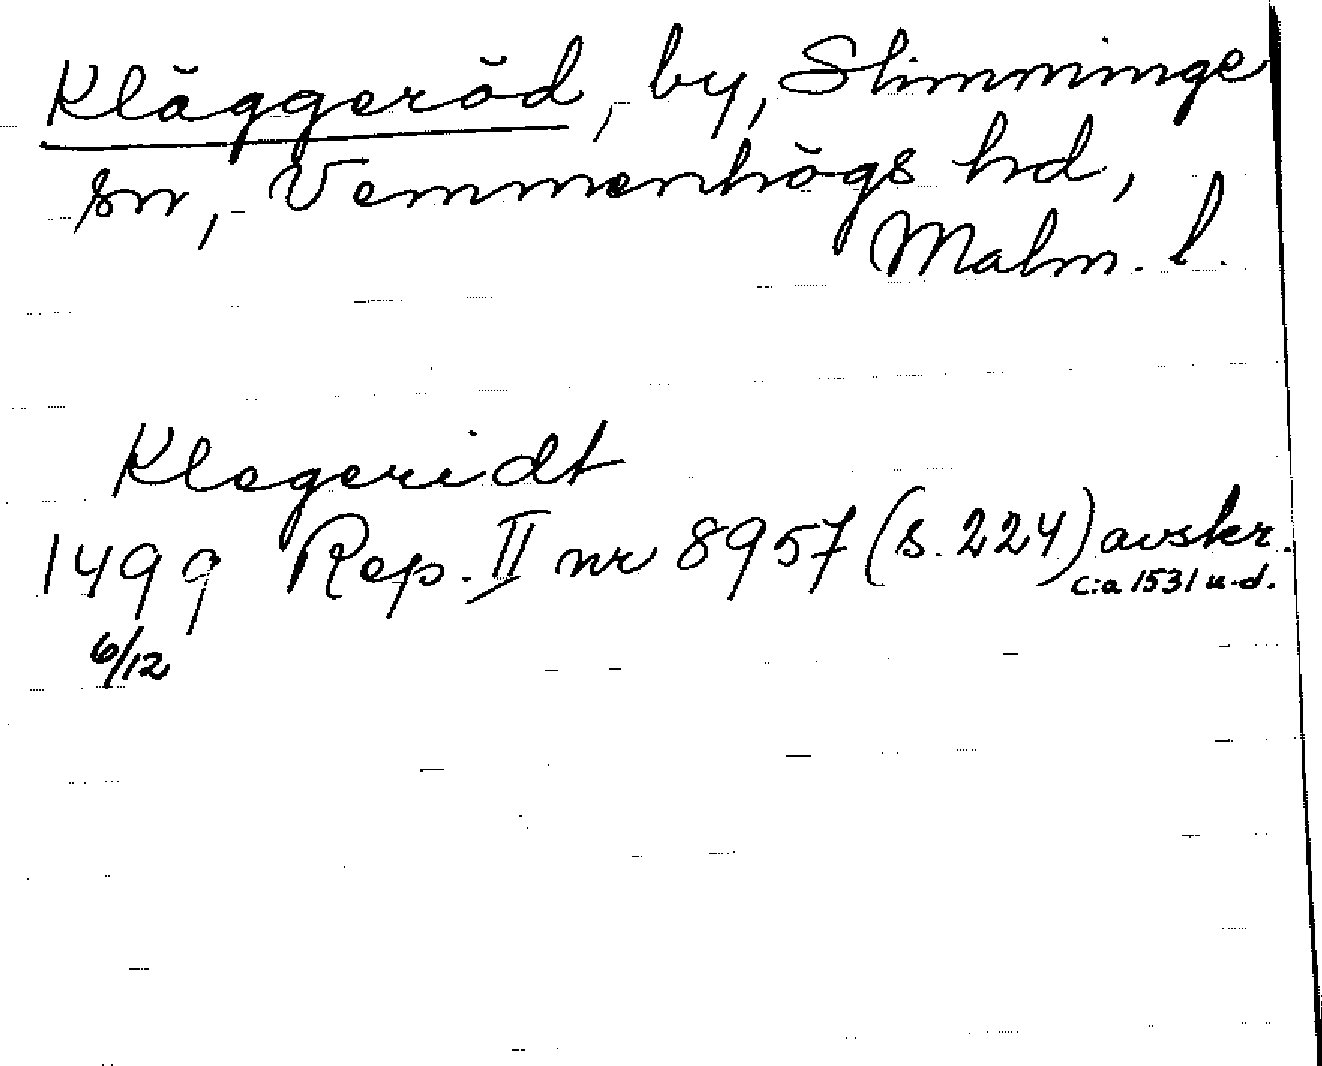 Kläggeröd, by, Slimminge
sn, Vemmenhögs hd,
Malm. l.
Klegeridt
1499 Rep. II nr 8957 (s. 224) avskr.
c:a 1531 u.d.
6/12